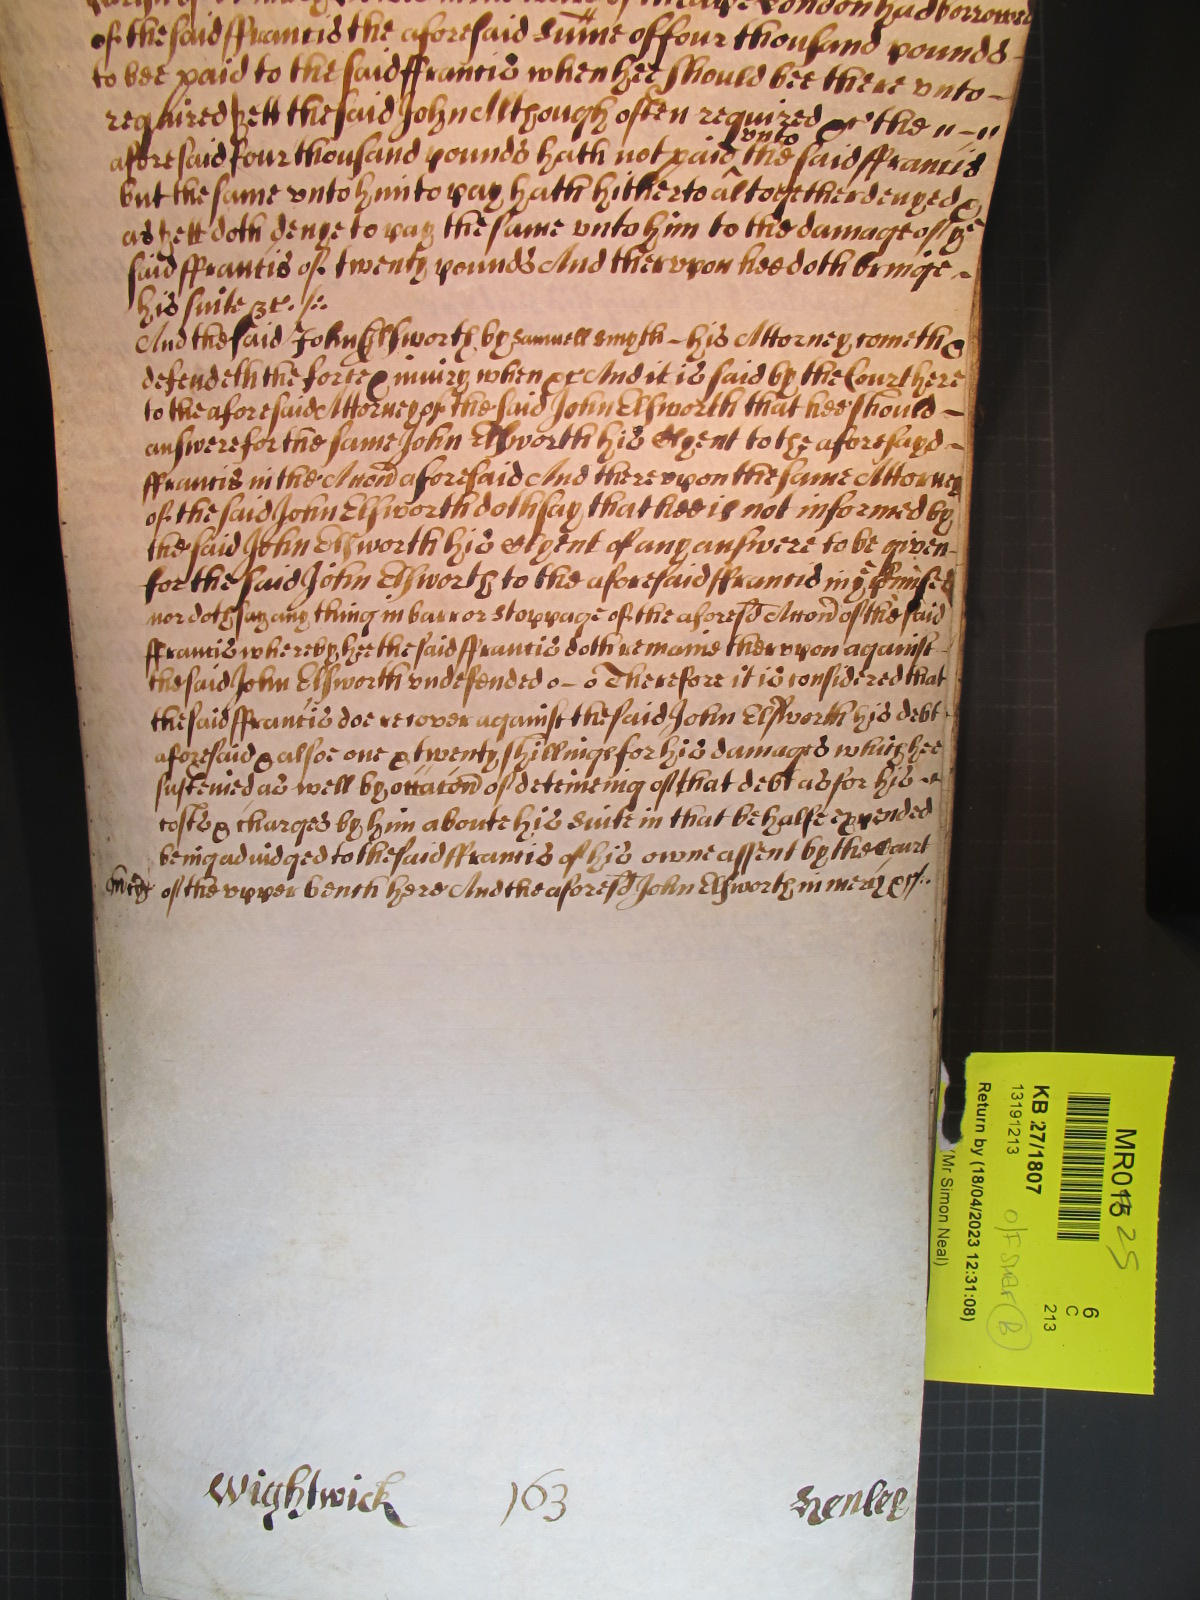 London had borrowed
of the said ffrancis the aforesaid Sume of four thousand pounds
to bee paid to the said ffrancis when hee should bee there vnto –
required yett the said John Allthough often required &c the
aforesaid four thousand pounds hath not paid vnto the said ffrancis
but the same vnto him to pay hath hitherto altogether denyed &
as yett doth denye to pay the same vnto him to the damage of ye
said ffrancis of twenty pounds And thervpon hee doth bringe –
his suite &c
And the said John Ellsworth by Samuell Smyth – his Attorney cometh &
defendeth the force & iniury when &c And it is said by the Court here
to the aforesaid Attorney of the said John Elsworth that hee should –
answere for the same John Elsworth his Clyent to the aforesayd –
ffrancis in the Accon aforesaid And therevpon the same Attorney
of the said John Elsworth doth say that hee is not informed by
the said John Elsworth his Clyent of any answere to be given
for the said John Elsworth to the aforesaid ffrancis in ye p̱mises
nor doth say any thing in barr or stoppage of the aforesd Accon of the said
ffrancis whereby hee the said ffrancis doth remaine thervpon against
the said John Elsworth vndefended o – o Therefore it is considered that
the said ffrancis doe recover against the said John Elsworth his debt
aforesaid & alsoe one & twenty shillings for his damages which hee
susteined as well by occacon of deteineing of that debt as for his
costs & charges by him aboute his Suite in that behalfe expended
being adiudged to the said ffrancis of his owne assent by the Court
of the vpper bench here And the aforesd John Elsworth in mercy &c
Wightwick 163 Henley
MR015 25
KB 27/1807
13191213
Return by (18/04/2023 12:31:08)
(Mr Simon Neal)
6
C
213
O/F Shelf B